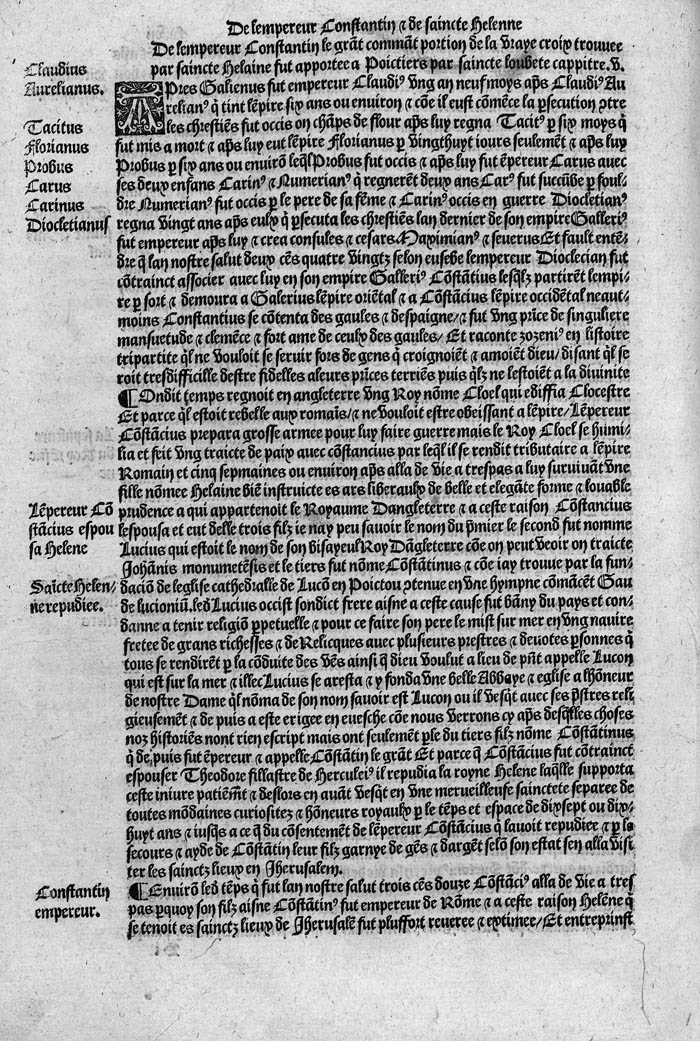 De lempereur Constantin ⁊ de saincte Helenne
De lempereur Constantin le grãt commãt portion de la vraye croix trouuee
par saincte Helaine fut apportee a Poictiers par saincte loubete cappitre.v.
Claudius
Aurelianus.
Tacitus
Florianus
Probus
Carus
Carinus
Diocletianus
APres Galienus fut empereur Claudiꝰ vng an neuf moys aps̃ Claudiꝰ Au
relianꝰ q̃ tint lẽpire six ans ou enuiron ⁊ cõe il eust cõmẽce la p̱secution ꝯtre
les chrestiẽs fut occis on chãps de flour aps̃ luy regna Tacitꝰ p̱ six moys q̃
fut mis a mort ⁊ aps̃ luy eut lẽpire Florianus p̱ vingthuyt iours seulemẽt ⁊ aps̃ luy
Probus p̱ six ans ou enuirõ leq̃l Probus fut occis ⁊ aps̃ luy fut ẽpereur Carus auec
ses deux enfans Carinꝰ ⁊ Numerianꝰ q̃ regnerẽt deux ans Carꝰ fut succũbe p̱ foul/
dre Numerianꝰ fut occis p̱ le pere de sa fẽme ⁊ Carinꝰ occis en guerre Diocletianꝰ
regna vingt ans aps̃ eulx q̃ p̱secuta les chrestiẽs lan dernier de son empire Galleriꝰ
fut empereur aps̃ luy ⁊ crea consules ⁊ cesars Maximianꝰ ⁊ seuerus Et fault entẽ/
dre q̃ lan nostre salut deux cẽs quatre vingtz selon eusebe lempereur Dioclecian fut
cõtrainct associer auec luy en son empire Galleriꝰ Cõstãtius lesq̃lz partirẽt lempi/
re p̱ sort ⁊ demoura a Galerius lẽpire oriẽtal ⁊ a Cõstãcius lẽpire occidẽtal neaut/
moins Constantius se cõtenta des gaules ⁊ despaigne/⁊ fut vng prĩce de singuliere
mansuetude ⁊ clemẽce ⁊ fort ame de ceulx des gaules/ Et raconte zozeniꝰ en listoire
tripartite q̃l ne vouloit se seruir fors de gens q̃ croignoiẽt ⁊ amoiẽt dieu/disant q̃l se
roit tresdifficille destre fidelles aleurs prĩces terriẽs puis q̃lz ne lestoiẽt a la diuinite
¶ Ondit temps regnoit en angleterre vng Roy nõme Cloel qui ediffia Clocestre
Et parce q̃l estoit rebelle aux romaĩs/⁊ ne vouloit estre obeissant a lẽpire/Lẽpereur
Cõstãcius prepara grosse armee pour luy faire guerre mais le Roy Cloel se humi/
lia et feit vng traicte de paix auec cõstancius par leq̃l il se rendit tributaire a lẽpire
Romain et cinq sepmaines ou enuiron aps̃ alla de vie a trespas a luy suruiuãt vne
fille nõmee Helaine biẽ instruicte es ars liberaulx de belle et elegãte forme ⁊ louable
Lẽpereur Cõ
stãcius espou
sa Helene
prudence a qui appartenoit le Royaume Dangleterre ⁊ a ceste raison Cõstancius
lespousa et eut delle trois filz ie nay peu sauoir le nom du p̃mier le second fut nomme
Lucius qui estoit le nom de son bisayeul Roy Dãgleterre cõe on peut veoir on traicte
Johãnis monumetẽsis et le tiers fut nõme Cõstãtinus ⁊ cõe iay trouue par la fun/
Saĩcte Helen/
ne repudiee.
daciõ de leglise cathedralle de Lucõ en Poictou ꝯtenue en vne hympne cõmãcẽt Gau
de lucioniũ.led̃ Lucius occist sondict frere aisne a ceste cause fut bãny du pays et con/
danne a tenir religiõ p̱petuelle ⁊ pour ce faire son pere le mist sur mer en vng nauire
fretee de grans richesses ⁊ de Relicques auec plusieurs prestres ⁊ deuotes p̱sonnes q̃
tous se rendirẽt p̱ la cõduite des vẽs ainsi q̃ dieu voulut a lieu de pñt appelle Lucon
qui est sur la mer ⁊ illec Lucius se aresta ⁊ y fonda vne belle Abbaye ⁊ eglise a lhõneur
de nostre Dame q̃l nõma de son nom sauoir est Lucon ou il vesq̃t auec ses p̃stres reli
gieusemẽt ⁊ de puis a este erigee en euesche cõe nous verrons cy aps̃ desq̃lles choses
noz historiẽs nont rien escript mais ont seulemẽt p̱le du tiers filz nõme Cõstãtinus
q̃ de puis fut ẽpereur ⁊ appelle Cõstãtin le grãt Et parce q̃ Cõstãcius fut cõtrainct
espouser Theodore fillastre de Herculeiꝰ il repudia la royne Helene laq̃lle supporta
ceste iniure patiẽmt̃ ⁊ deslors en auãt vesq̃t en vne merueilleuse sainctete separee de
toutes mõdaines curiositez ⁊ hõneurs royaulx p̱ le tẽps et espace de dixsept ou dix/
huyt ans ⁊ iusq̃s a ce q̃ du cõsentemẽt de lẽpereur Cõstãcius q̃ lauoit repudiee ⁊ p̱ le
secours ⁊ ayde de Cõstãtin leur filz garnye de gẽs ⁊ dargẽt selõ son estat sen alla visi
ter les sainctz lieux en Jherusalem.
Constantin
empereur.
¶ Enuirõ led̃ tẽps q̃ fut lan nostre salut trois cẽs douze Cõstãciꝰ alla de vie a tres
pas parquoy son filz aisne Cõstãtinꝰ fut empereur de Rõme ⁊ a ceste raison Helẽne q̃
se tenoit es sainctz lieux de Jherusalẽ fut pluffort reueree ⁊ extimee/Et entreprinst